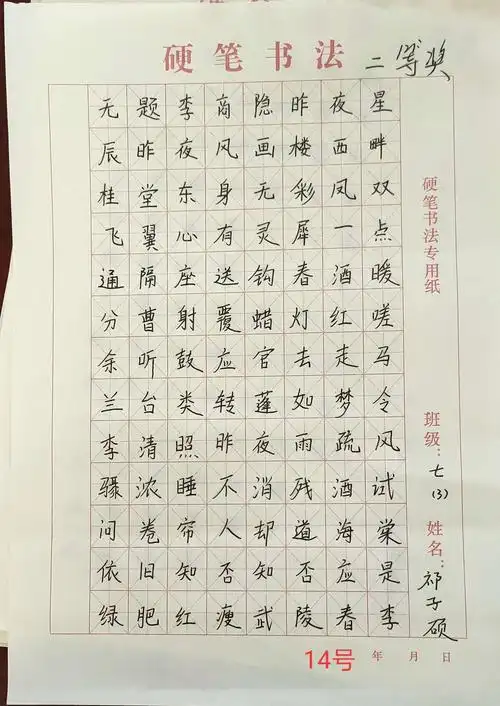 硬笔书法
二等奖
无题李商隐昨夜星
辰昨夜风画楼西畔
桂堂东身无彩凤双
飞翼心有灵犀一点
通隔座送钩春酒暖
分曹射覆蜡灯红嗟
余听鼓应官去走马
兰台类转蓬如梦令
李清照昨夜雨疏风
骤浓睡不消残酒试
问卷帘人却道海棠
依旧知否知否应是
绿肥红瘦武陵春李
硬笔书法专用纸
班级：七(3)
姓名：祁子硕
14号
年 月 日